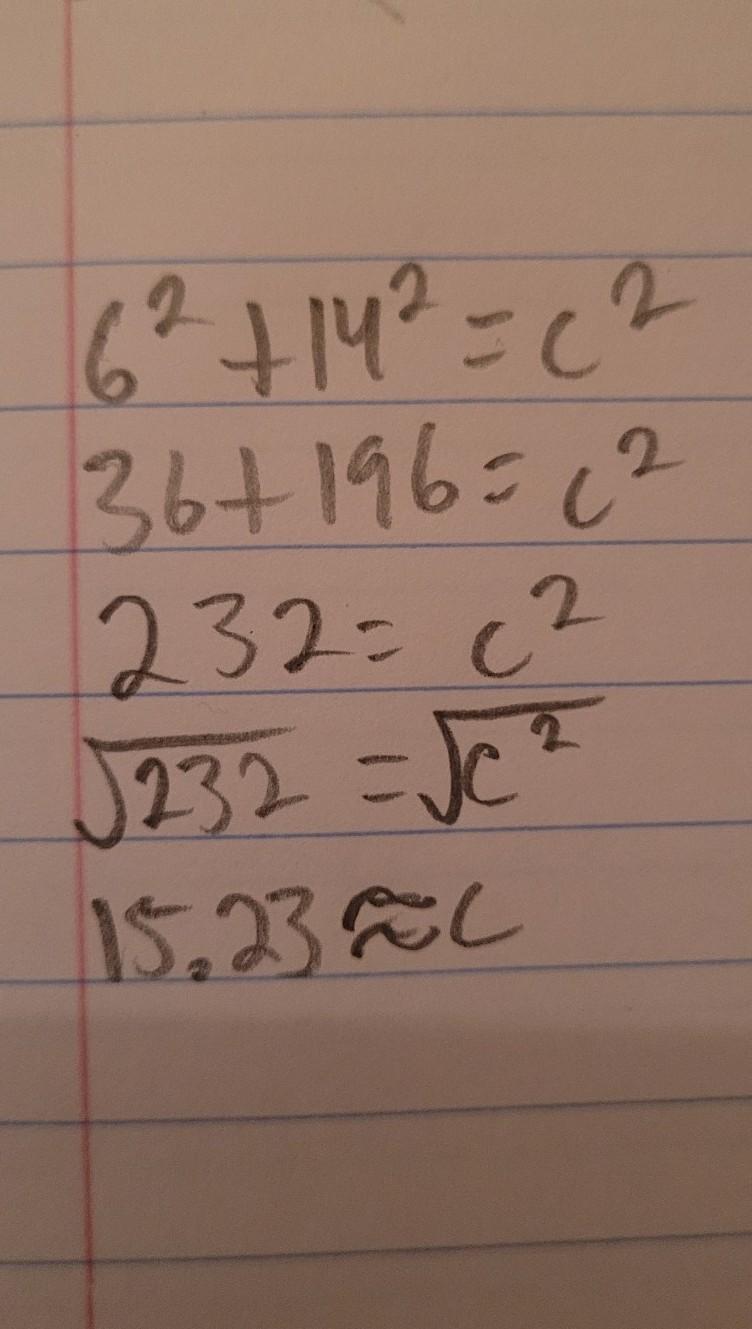 6² + 14² = c²
36 + 196 = c²
232 = c²
√232 = √c²
15.23 ≈ c